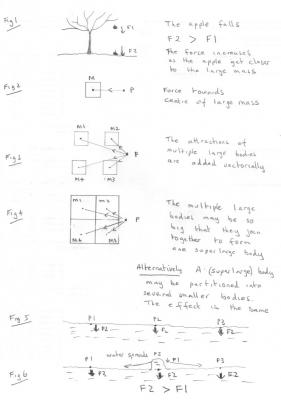 Fig 1
The apple falls
F1
F2 > F1
F2
The force increases
as the apple get closer
to the large mass
Fig 2
M
P
Force towards
centre of large mass
Fig 3
M1
M2
P
M4
M3
The attractions of
multiple large bodies
are added vectorially
Fig 4
M1
M2
P
M4
M3
The multiple large
bodies may be so
big that they join
together to form
one super large body
Alternatively A (superlarge) body
may be partitioned into
several smaller bodies.
The effect is the same
Fig 5
P1
P2
P3
F2
F2
F2
Fig 6
P1
water spreads
P2
F1
P3
F2
F2
F2
F2 > F1